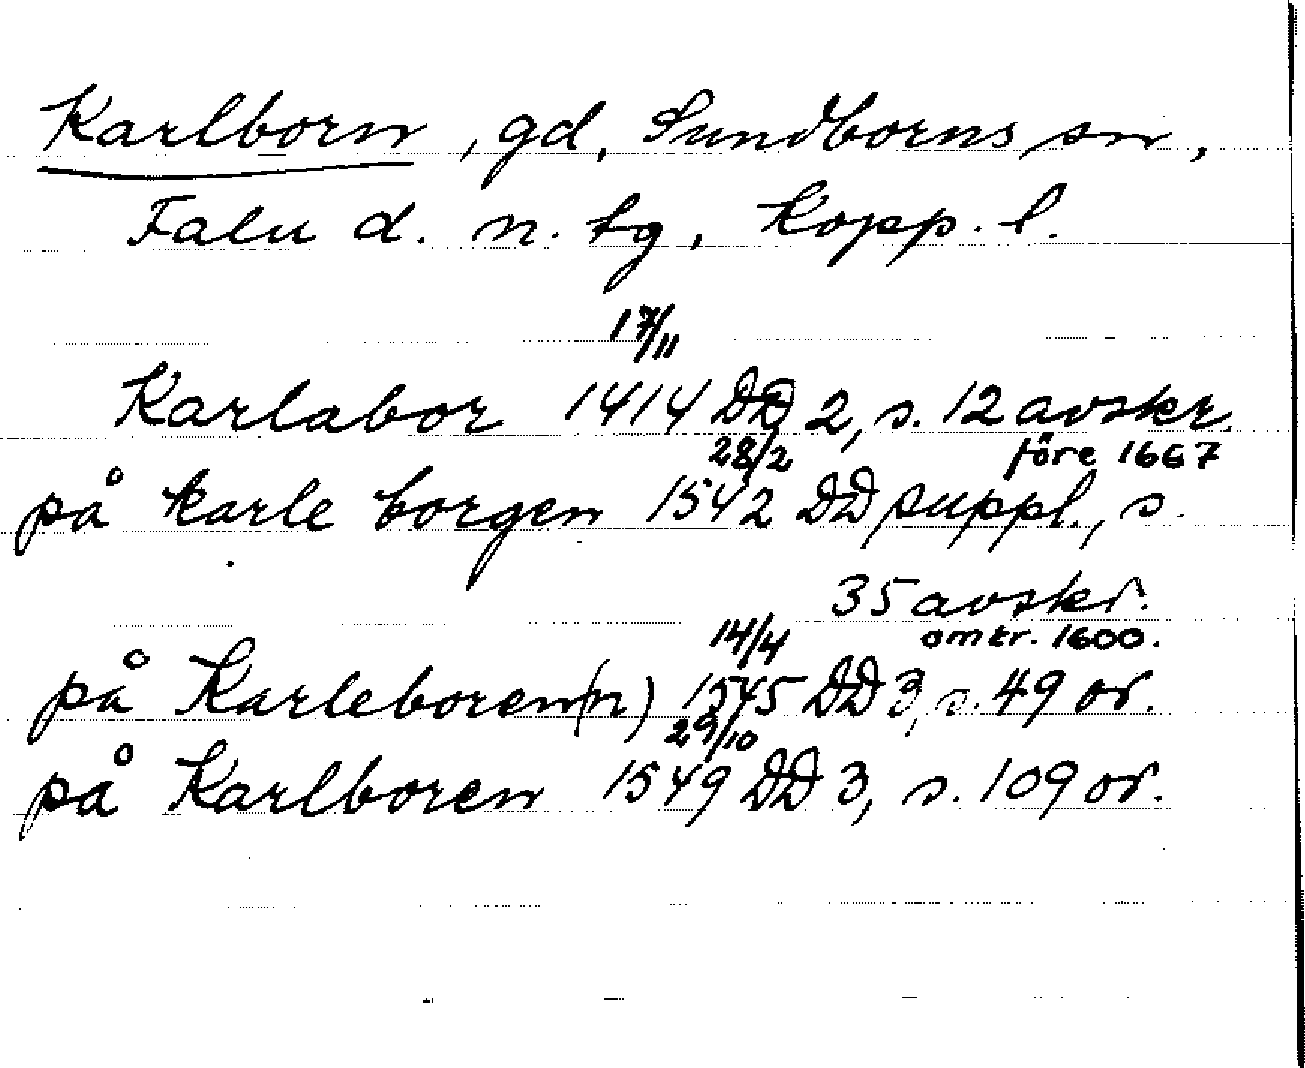 Karlborn, gd, Sundborns sn,
Falu d. n. tg, Kopp. l.
17/11
Karlabor 1414 DD 2, s. 12 avskr.
28/2 före 1667
på karle borgen 1542 DD suppl., s.
35 avskr.
14/4 omkr. 1600.
på Karleboren(n) 1545 DD 3, s. 49 or.
29/10
på Karlboren 1549 DD 3, s. 109 or.